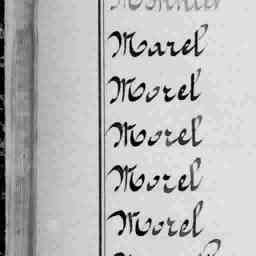 Marel
Morel
Morel
Morel
Morel